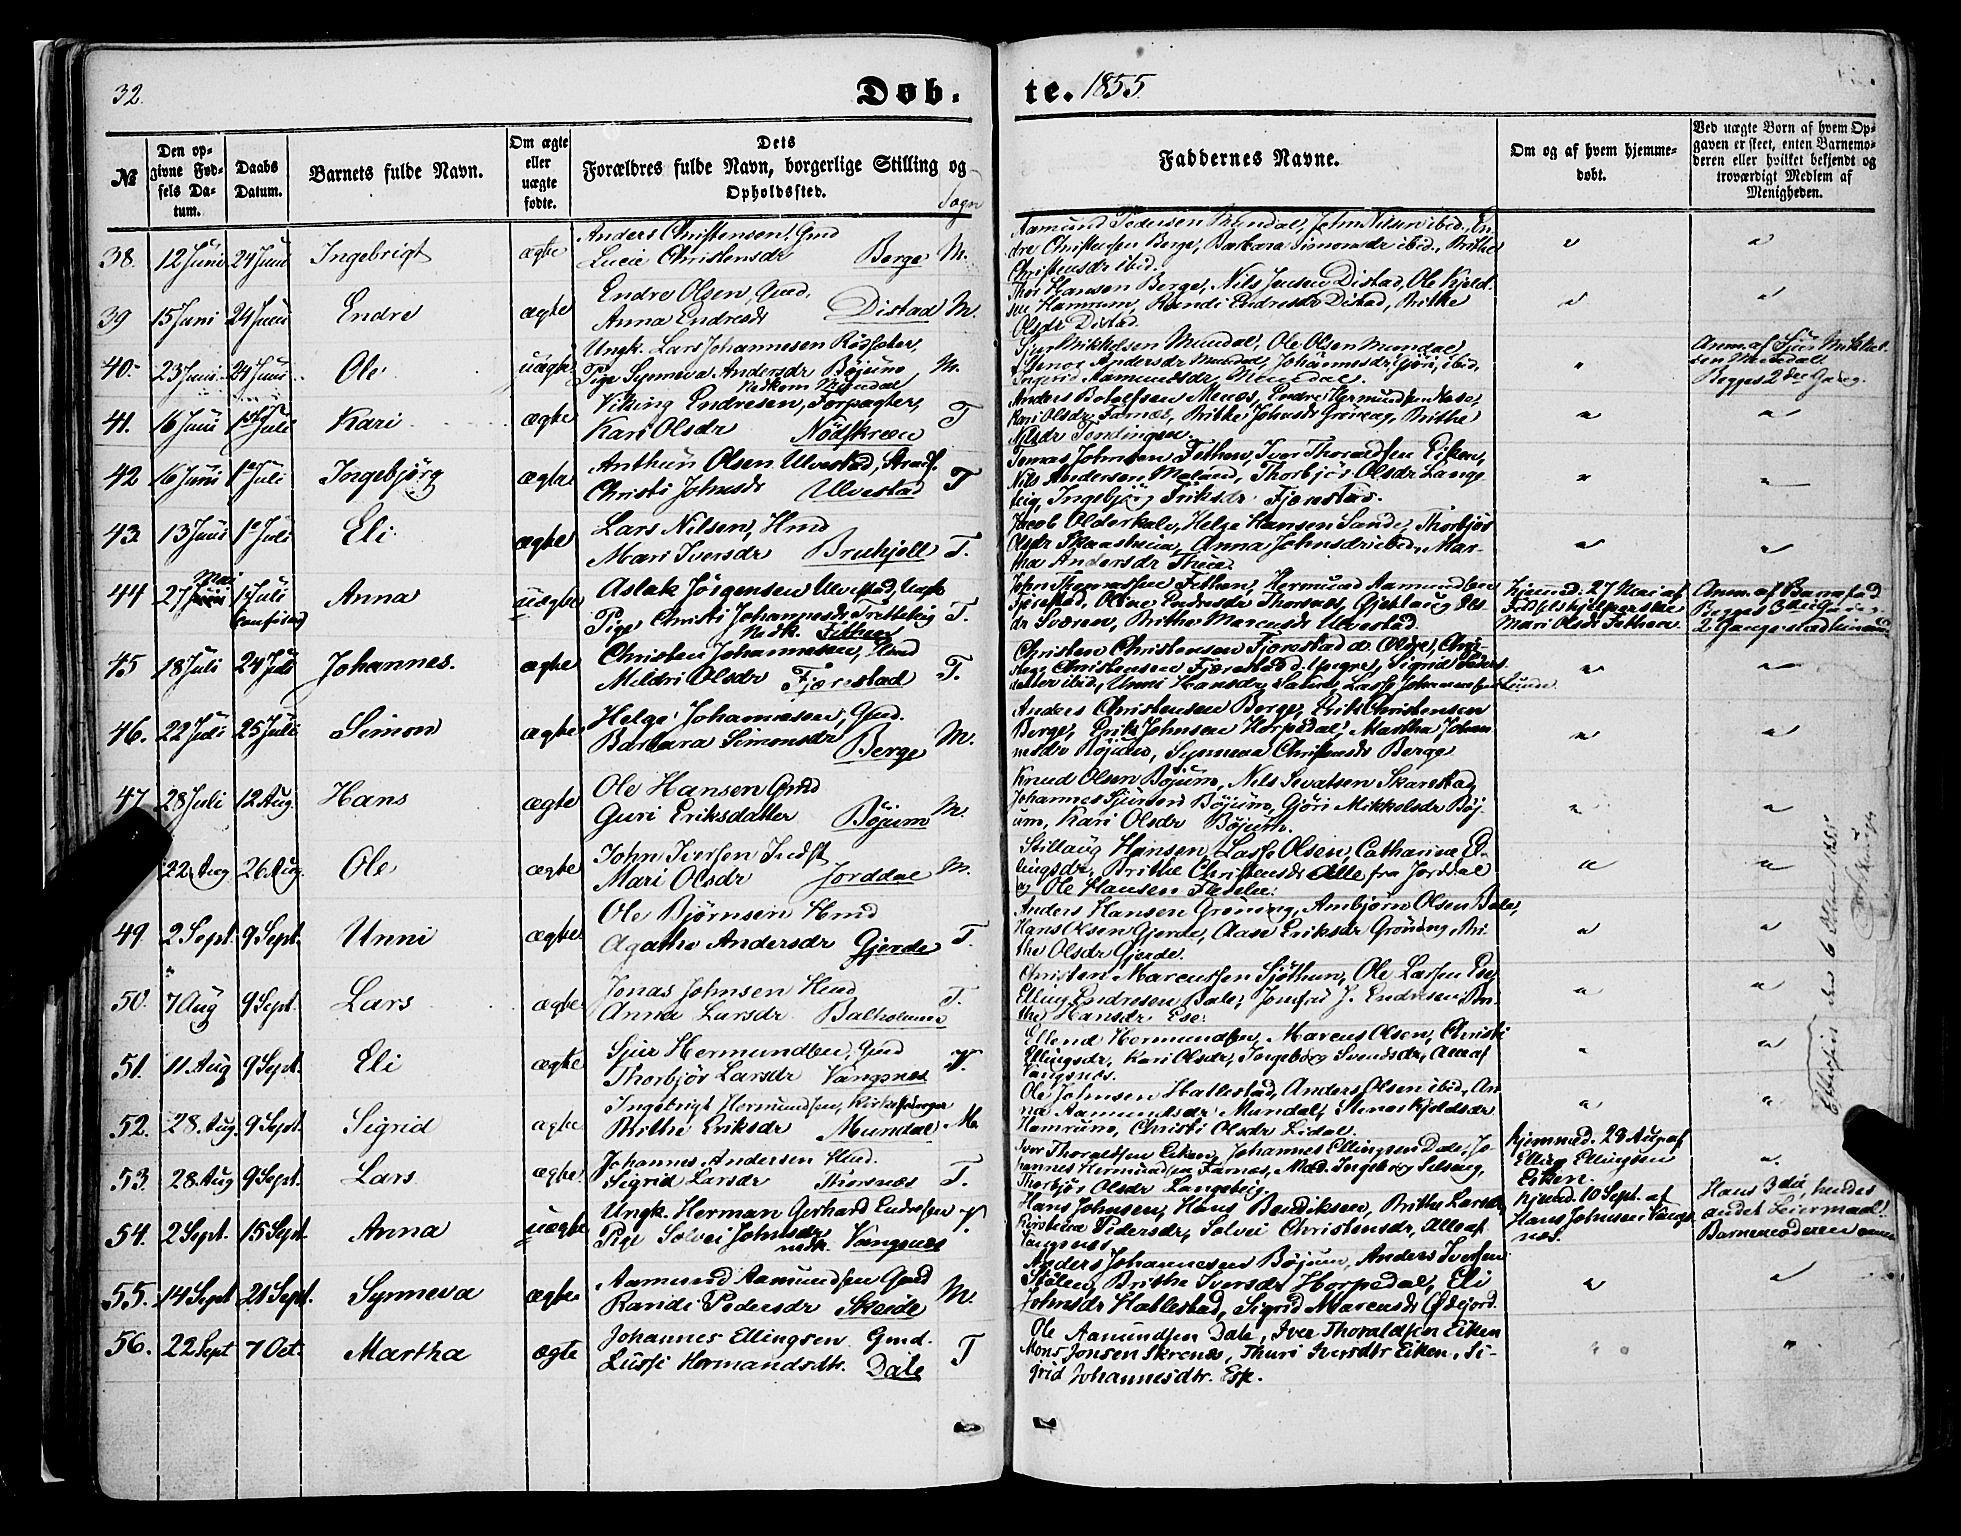 32.
Døb-
te. 1855.
№
Den opgivne Fødsels Datum.
Daabs Datum.
Barnets fulde Navn.
Om ægte eller uægte fødte.
Dets Forældres fulde Navn, borgerlige Stilling og Opholdssted.
Sogn
Faddernes Navne.
Om og af hvem hjemmedøbt.
Ved uægte Børn af hvem Opgaven er skeet, enten Barnemoderen eller hvilket bekjendt og troværdigt Medlem af Menigheden.
38. 12 Juni 24 Juni Ingebrigt ægte
Anders Christensen, Gmd
Lucie Christensdr Berge M.
Aamund Pedersen Mundal, John Nilsen ibid., En-
dre Christensen Berge, Barbara Simonsdr ibid., Brithe
Christensdr ibid.
39 15 Juni 24 Juni Endre ægte
Endre Olsen, Gmd.
Anna Endresdr Distad M.
Thor Hansen Berge, Nils Jensen Distad, Ole Kjeld-
sen Hamrum, Randi Endresdr Distad, Brithe
Olsdr Distad.
40. 23 Juni 24 Juni Ole uægte
Ungk. Lars Johannesen
Pige Synneva Andersdr Bøjum M.
Nedkom Mundal
Mikkelsen Mundal, Ole Olsen Mundal,
Andersdr Mundal, Johannesdr ibid,
Ingerid Aamundsdr
Anm. af Sjur Mikkel-
sen Mundal.
Begges 2den Gang.
41. 16 Juni 1ste Juli Kari ægte
Viking Endresen, Forpagter,
Kari Olsdr Nødskreen T
Anders Menes, Endre Hermundsen
Kari Olsdr Farnæs, Brithe Johnsdr Brithe
Nilsdr
42 16 Juni 1e Juli Ingebjörg ægte
Anthun Olsen Ulvestad,
Christi Johnsdr Ulvestad T
Tomas Johnsen Fethen, Iver Thoraldsen Eiken,
Nils Andersen Meland, Thorbjör Olsdr Lang-
teig, Ingebjörg Eriksdr Fjærestad.
43. 13 Juni 1e Juli Eli ægte
Lars Nilsen, Hmd
Mari Iversdr T.
Jacob Helge Hansen Sande, Thorbjör
Olsdr Anna Johnsdr ibid, Mar-
tha Andersdr
44 27 Mai 1 Juli Anna uægte
Aslak Jörgensen Ulvestad,
Pige Christi Johannesdr T.
Nedk. Fethen
John Thomassen Fethen, Hermund Aamundsen
Fjærestad, Oline Endresdr Thorsnæs,
dr Sværen, Brithe Marcusdr Ulvestad.
hjemmed. 27 Mai af
Mari Olsdr Fethen.
Anm. af Barnefad.
45 18 Juli 24 Juli Johannes. ægte
Christen Johannesen, Hmd
Mildri Olsdr Fjærestad T.
Christen Christensen Fjærestad d. Oldre,
Christensen Fjærestad d. Yngre, Sigrid
datter ibid, Unni Hansdr Lasse Johannesen
46. 22 Juli 25 Juli Simon ægte
Helge Johannesen, Gmd.
Barbara Simonsdr Berge M.
Anders Christensen Berge, Erik Christensen
Berge, Erik Johnsen Horpedal, Martha Johan-
nesdr Bøjum, Synneva Christensdr Berge
47 28 Juli 12 Aug. Hans ægte
Ole Hansen Gmd
Guri Eriksdatter Bøjum M.
Knud Olsen Bøjum, Nils Sevatsen Skarestad
Johannes Sjursen Bøjum, Gjöri Mikkelsdr Bøj-
um, Kari Olsdr Bøjum.
22 Aug 26 Aug. Ole ægte
John Iversen Indst
Mari Olsdr Jorddal M.
Stillaug Hansen, Lasse Olsen, Catharina El-
lingsdr, Brithe Christensdr Alle fra Jorddal
og Ole Hansen
49. 2 Sept. 9 Sept. Unni ægte
Ole Bjørnsen Hmd
Agathe Andersdr Gjerde T.
Anders Hansen Grøning, Arnbjørn Olsen Bale,
Hans Olsen Gjerde, Aase Eriksdr Grøning, Bri-
the Olsdr Gjerde.
50. 7 Aug 9 Sept. Lars ægte
Jonas Johnsen Hmd
Anna Larsdr Balholmen T.
Christen Marcussen Sjøthun, Ole Larsen Ese
Elling Endresen Bale, Jomfru J. Endresen, Bri-
the Hansdr Ese.
51. 11 Aug 9 Sept. Eli ægte
Sjur Hermundsen, Gmd
Thorbjör Larsdr Vangsnes V.
Ellend Hermundsen, Marcus Olsen, Christi
Ellingsdr, Kari Olsdr, Ingeborg Svendsdr, Alle af
Vangsnæs.
52. 28 Aug. 9 Sept. Sigrid ægte
Ingebrigt Hermundsen, Kirkesanger
Brithe Eriksdr Mundal M.
Ole Johnsen Hatlestad, Anders Olsen ibid, An-
na Aamundsdr Mundal, Kjeldsdr
Hamrum, Christi Olsdr Lidal.
53. 28 Aug 9 Sept. Lars ægte.
Johannes Andersen Hmd.
Sigrid Larsdr Thorsnæs T.
Iver Thoraldsen Eiken, Johannes Ellingsen Dale, Jo-
hannes Hermundsen Farnæs, Mad. Ingeborg Selseng,
Thorbjör Olsdr Langeteig.
hjemmed. 28 Aug af
Elling Ellingsen
Eiken.
54. 2 Sept. 15 Sept. Anna uægte
Ungk. Herman Gerhard Endresen V.
Pige Solvei Johnsdr
nedk. Vangsnes
Hans Johnsen, Hans Bendiksen, Brithe Larsdr
Pedersdr, Solvei Christensdr, Alle af
Vangsnæs
hjemd. 10 Sept. af
Hans Johnsen Vangs-
næs.
Hans 3die, hendes
andet Leiermaal.
Barnemoderen
55. 14 Sept 21 Sept. Synneva ægte
Aamund Aamundsen Gmd
Randi Pedersdr Skeide M.
Anders Johannesen Bøjum, Anders Iversen
Stölen, Brithe Iversdr Horpedal, Eli
Johnsdr Hatlestad, Sigrid Marcusdr
56. 22 Sept 7 Oct. Martha ægte
Johannes Ellingsen Gmd.
Lussi Hermandsdtr. Dale T
Ole Aamundsen Dale, Iver Thoraldsen Eiken
Mons Jonsen Skrenæs, Thuri Iversdtr Eiken, Si-
grid Johannesdtr. Ese.